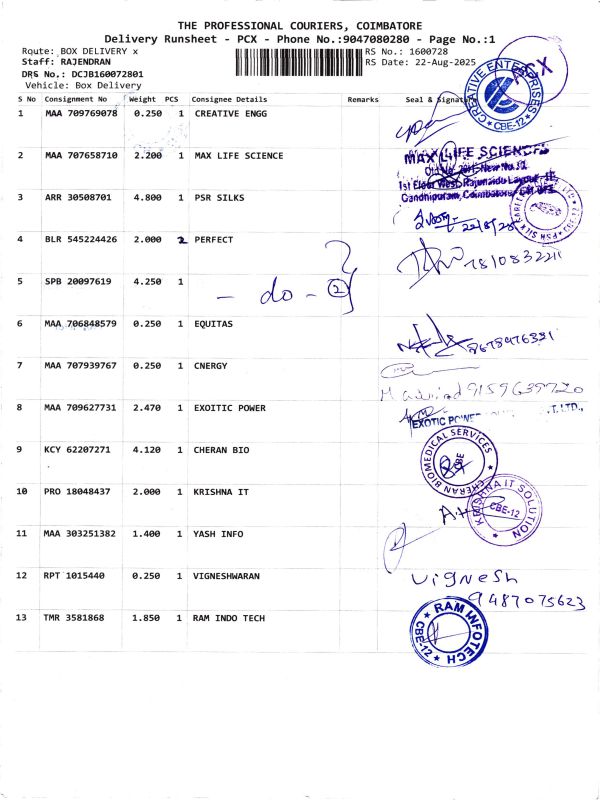 THE PROFESSIONAL COURIERS, COIMBATORE
Delivery Runsheet - PCX - Phone No.:9047080280 - Page No.:1
Route: BOX DELIVERY x RS No.: 1600728
Staff: RAJENDRAN RS Date: 22-Aug-2025
DRS No.: DCJB160072801
Vehicle: Box Delivery
S No Consignment No Weight PCS Consignee Details Remarks Seal & Signature
1 MAA 709769078 0.250 1 CREATIVE ENGG
CREATIVE ENTERPRISES CBE-12
2 MAA 707658710 2.200 1 MAX LIFE SCIENCE
MAX LIFE SCIENCES
1st Floor West, Rajunaidu Layout
Gandhipuram, Coimbatore
3 ARR 30508701 4.800 1 PSR SILKS
22/8/25
4 BLR 545224426 2.000 2 PERFECT
7810832211
5 SPB 20097619 4.250 1
- do - 2
6 MAA 706848579 0.250 1 EQUITAS
8678976331
7 MAA 707939767 0.250 1 CNERGY
9159639720
8 MAA 709627731 2.470 1 EXOITIC POWER
EXOTIC POWE T. LTD.,
9 KCY 62207271 4.120 1 CHERAN BIO
CHERAN BIOMEDICAL SERVICES CBE
10 PRO 18048437 2.000 1 KRISHNA IT
KRISHNA IT SOLUTION CBE-12
11 MAA 303251382 1.400 1 YASH INFO
12 RPT 1015440 0.250 1 VIGNESHWARAN
Vignesh
9487075623
13 TMR 3581868 1.850 1 RAM INDO TECH
RAM INFOTECH CBE-12